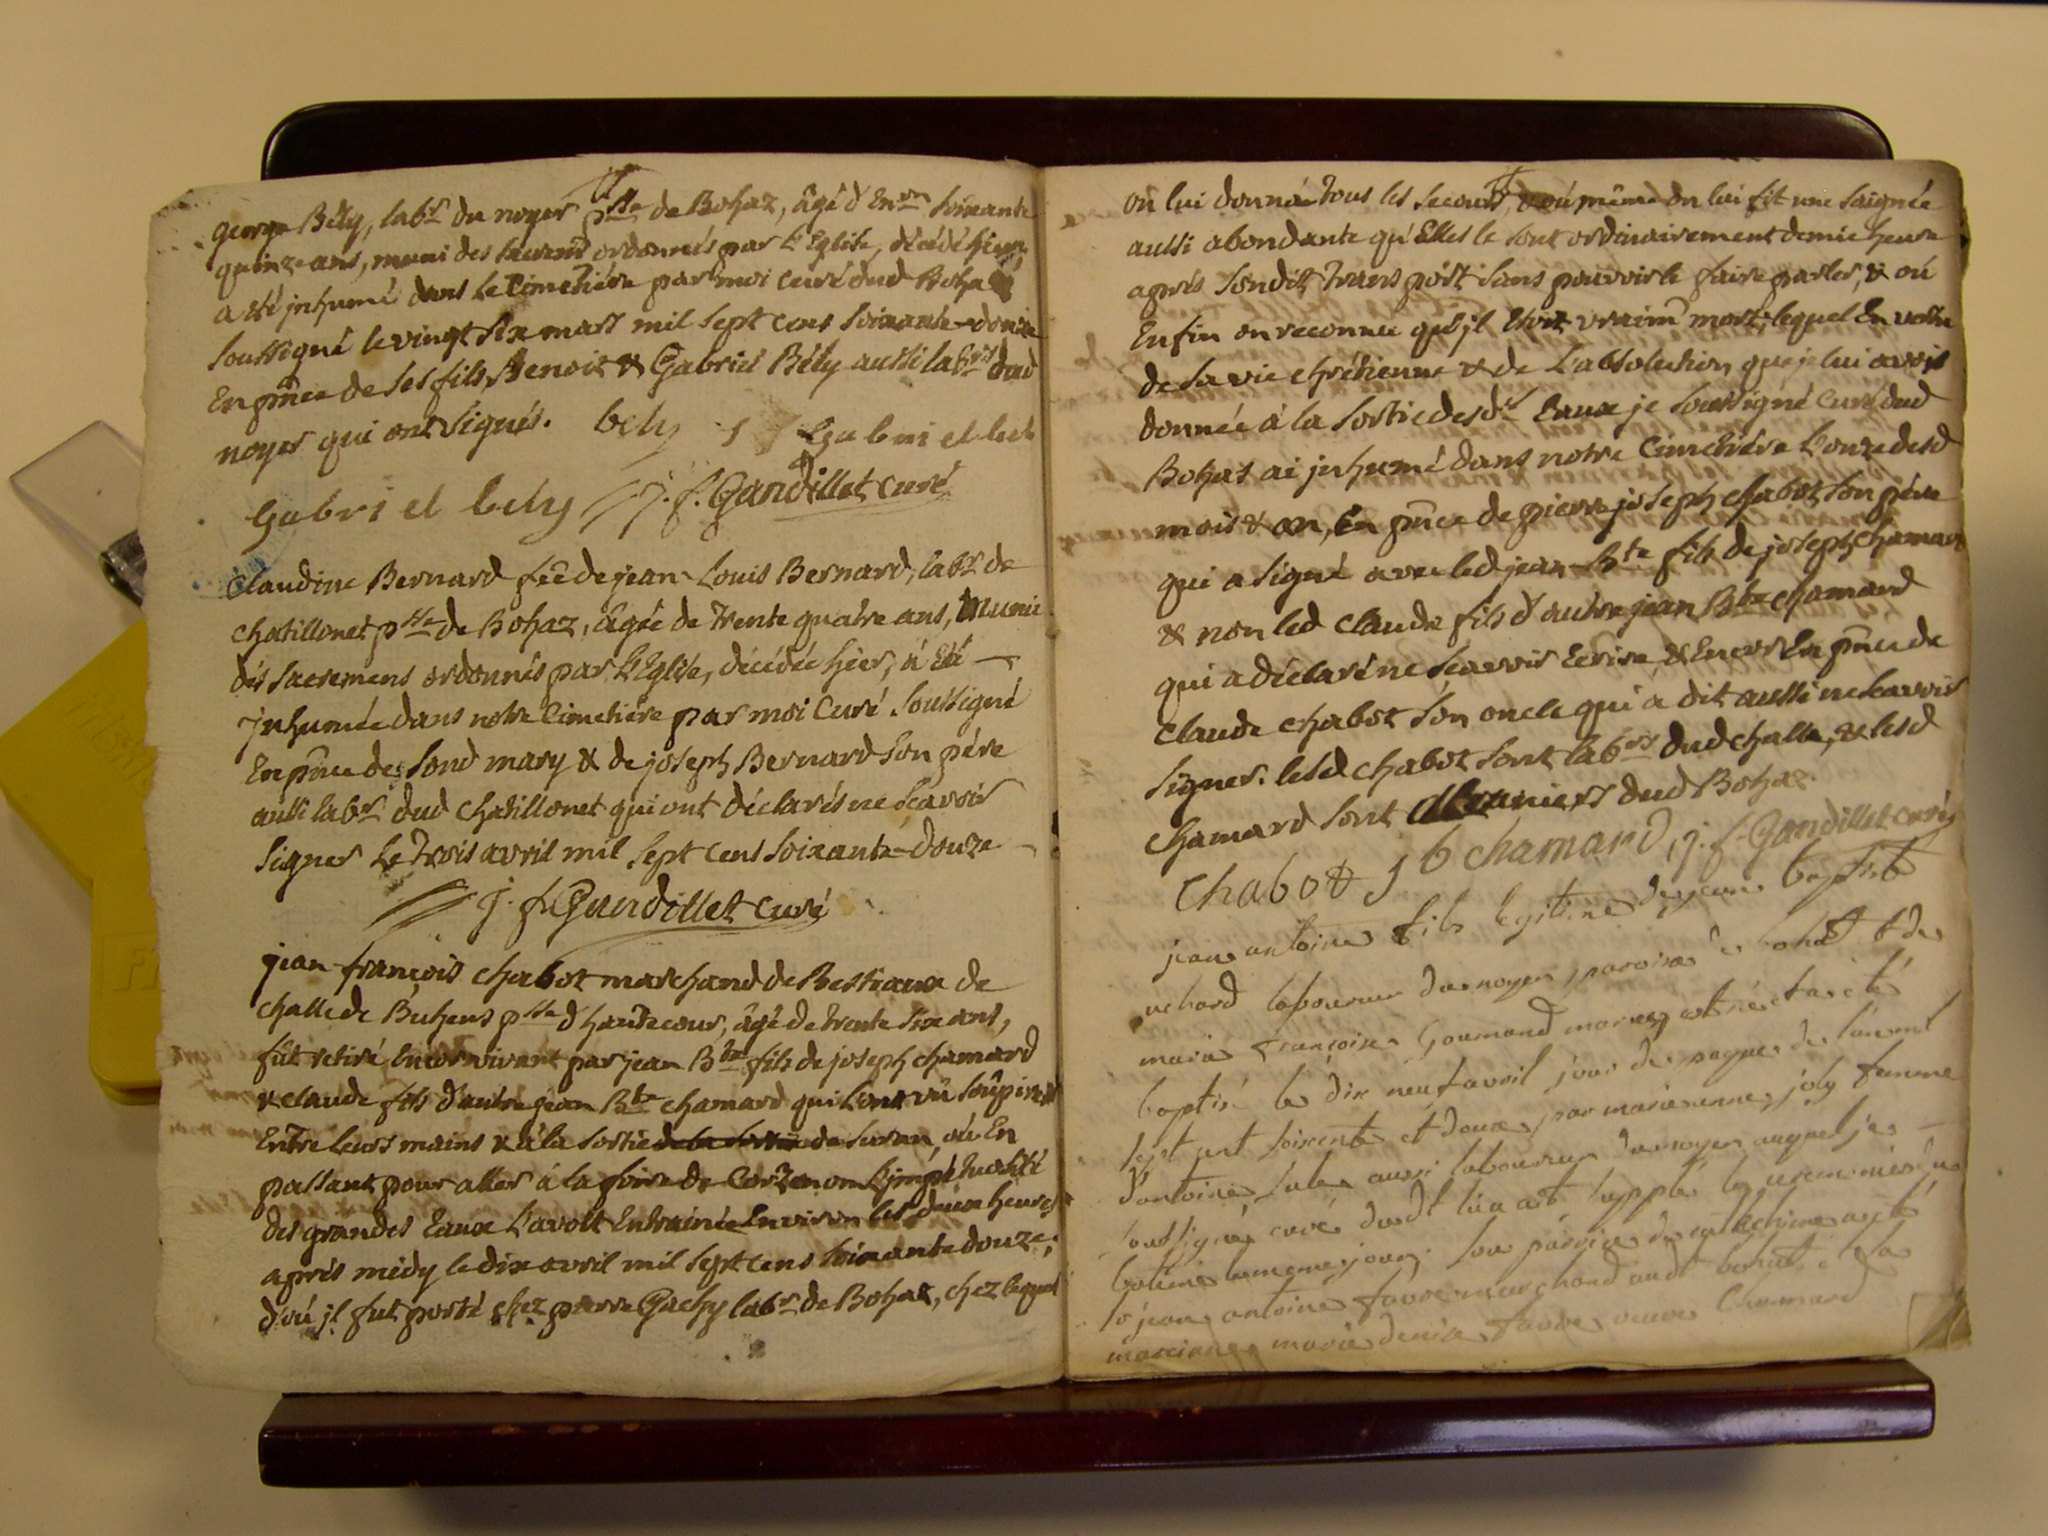 george Bély, labr du noyer psse de Bohaz, âgé d'Envon soixante
quinze ans, muni des sacremts ordonnés par L'Eglise, décédé hier,
a été jnhumé dans le Cimetiére par moi curé dud Bohaz
soussigné le vingt six mars mil sept cens soixante-douze
En pnce de ses fils Benoit & Gabriel Bély aussi labrs dud
noyer qui ont signés. bely Gabriel bely
Gabriel bely J. f. Gandillet curé
Claudine Bernard fêe de jean-Louis Bernard, labr de
chatillonet psse de Bohaz, âgée de trente quatre ans, Munie
dés sacremens ordonnés par L'Eglise, décédée hier, à Eté
jnhumée dans notre Cimetiére par moi Curé soussigné
En pnce de sond mary & de joseph Bernard son pére
aussi labr dud chatillonet qui ont déclarés ne sçavoir
signer Le trois avril mil sept cens soixante-douze
J. f. Gandillet curé
jean-françois chabot marchand de Bestiaux de
challe de Buhens psse d'hautecour, âgé de trente six ans,
fût retiré Encor vivant par jean Bte fils de joseph chamard
& claude fils d'autre jean Bte chamard qui L'ont vû soûpirer
Entre leurs mains & à la sortie de la sortie de suran, où En
passant pour aller à la foire de Corzenom L'jmpétuosité
des grandes Eaux L'avoit Entrainée Environ les deux heures
aprés midy le dix avril mil sept cens soixante douze;
d'où jl fut porté chez pierre Gachy labr de Bohaz, chez lequel
on lui donnée tous les secours, & où même on lui fit une saignée
aussi abondante qu'Elles le sont ordinairement demie heure
aprés sondit transport sans pouvoir le faire parler, & où
Enfin on reconnu qu'jl Etoit vraimt mort; lequel En vertu
de sa vie chrétienne & de L'absolution que je lui avois
donnée á la sortie desds Eaux je soussigné Curé dud
Bohas ai jnhumé dans notre Cimetiére L'onze desd
mois & an, En pnce de pierre joseph chabot son pére
qui a signé avec led jean-Bte fils de joseph chamard
& non led claude fils d'autre jean Bte chamard
qui a déclaré ne sçavoir Ecrire & Encor En pnce de
Claude chabot son oncle qui á dit aussi ne sçavoir
signer. lesd chabot sont labrs dud challe, & lesd
chamard sont dud Bohaz.
Chabot J b chamard, j. f. Gandillet curé
jean antoine fils legitime de jean baptiste
uchard laboureur du noyer paroisse de bohat et de
marie françoise Gourmand mariez est né et a été
baptisé le dix neuf avril jour de paques de l'an mil
sept cent soixente et douze, par marieanne joly femme
d'antoine aussi laboureur du noyer auquel je
soussigné curé dudt lieu ait supplée les ceremonies du
batême le meme jour, son parrin du cathechisme a eté
sr jean antoine favre marchand audt bohat, et la
marraine marie denise favre veuve Chamard